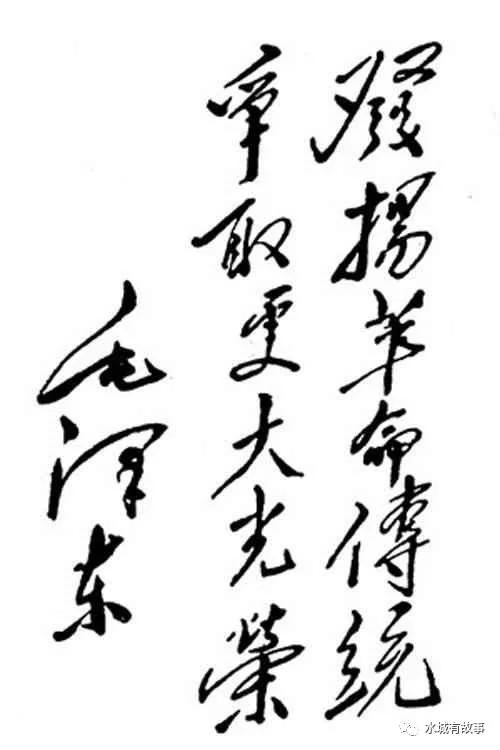 發揚革命傳統
爭取更大光榮
毛澤东
水城有故事